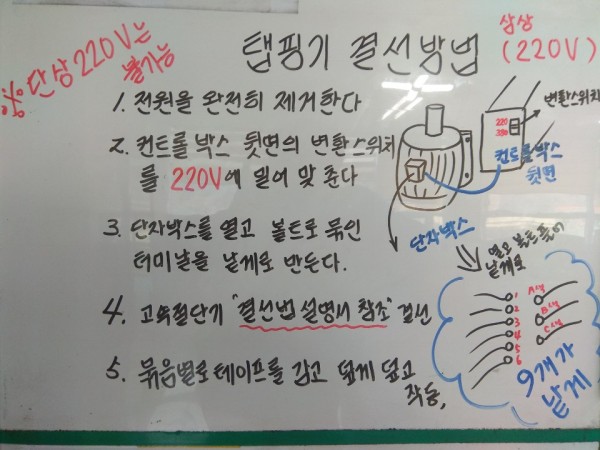 ※ 단상 220V는
불가능
탭핑기 결선방법
삼상
(220V)
1. 전원을 완전히 제거한다
2. 컨트롤 박스 뒷면의 변환스위치
를 220V에 밀어 맞춘다
3. 단자박스를 열고 볼트로 묶인
터미날을 낱게로 만든다.
4. 고속절단기 "결선법 설명서 참조" 결선
5. 묶음별로 테이프를 감고 덮게 덮고
작동,
변환스위치
220
380
컨트롤박스
뒷면
단자박스
열고 볼트 풀어
낱게로
1
2
3
4
5
6
A선
B선
C선
9개가
낱게